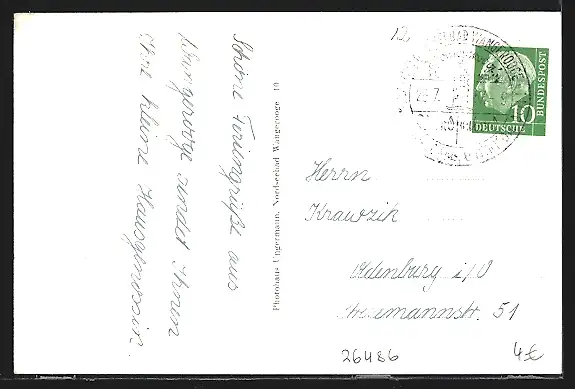 Schöne Feriengrüße aus
Wangerooge sendet Ihnen
Ihre kleine Hausgenossin.
Photohaus Ungermann, Nordseebad Wangerooge 10
12,
NORDSEEBAD WANGEROOGE
10
DEUTSCHE
BUNDESPOST
Herrn
Krawzik
Oldenburg i/O
51
26486
4€